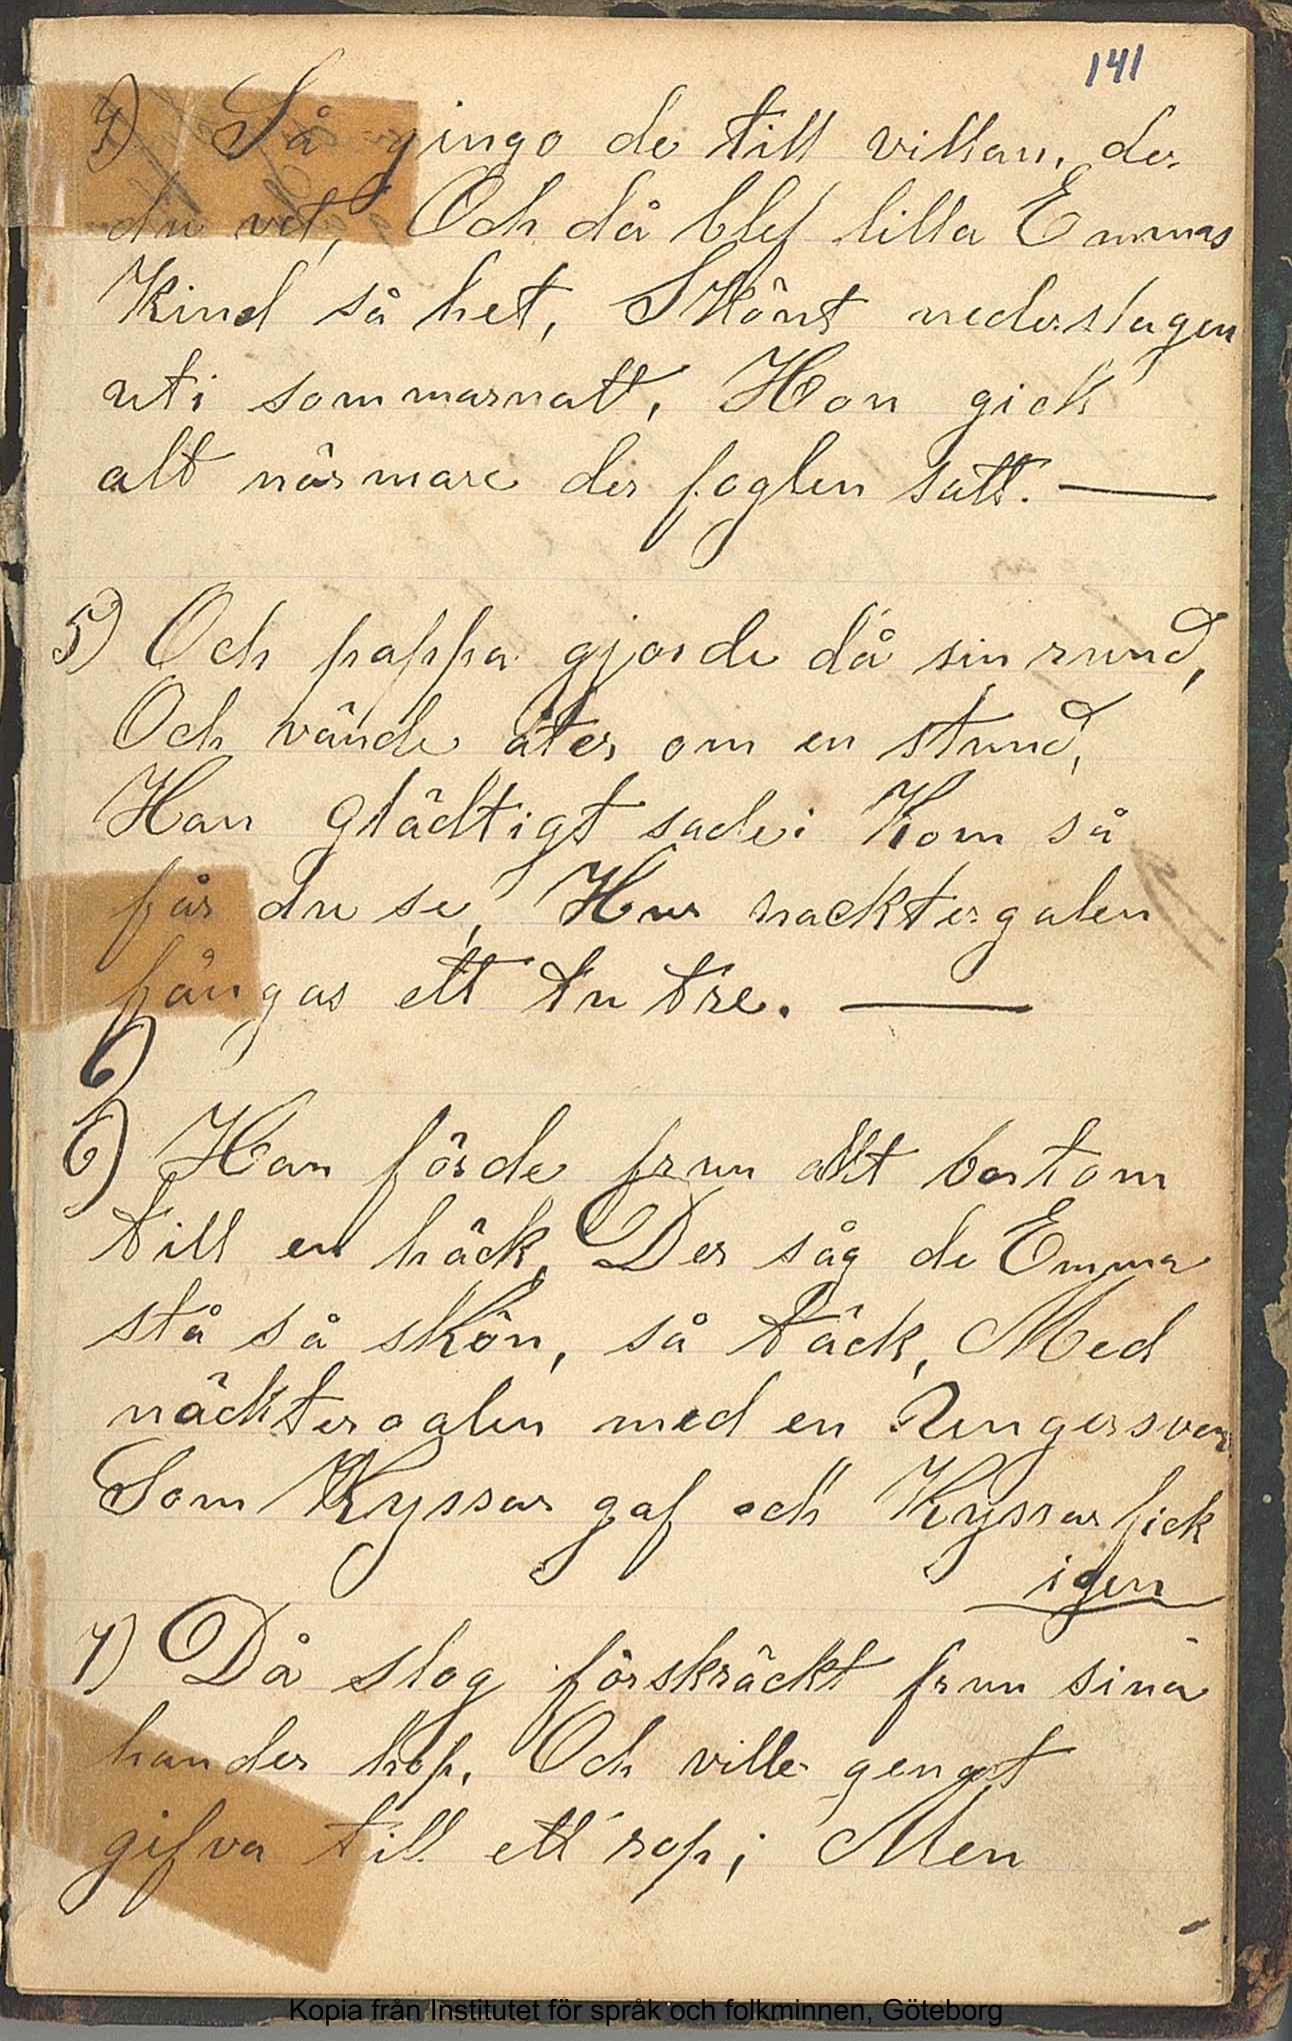 141
4) Så gingo de till villan, der
du vet, Och då blef lilla Emmas
Kind så het, Skönt nederslagen
uti sommarnatt, Hon gick
alt närmare der foglen satt. —
5) Och pappa gjorde då sin rund,
Och vände åter om en stund,
Han glädtigt sade: Kom så
får du se, Hur nacktergalen
fångas ett tu tre. —
6)
6) Han förde frun allt bortom
till en häck, Der såg de Emma
stå så skön, så täck, Med
näcktergalen med en Ungersven
Som Kyssar gaf och Kyssar fick
igen
7) Då slog förskräckt frun sina
hander hop, Och ville genast
gifva till ett rop; Men
Kopia från Institutet för språk och folkminnen, Göteborg